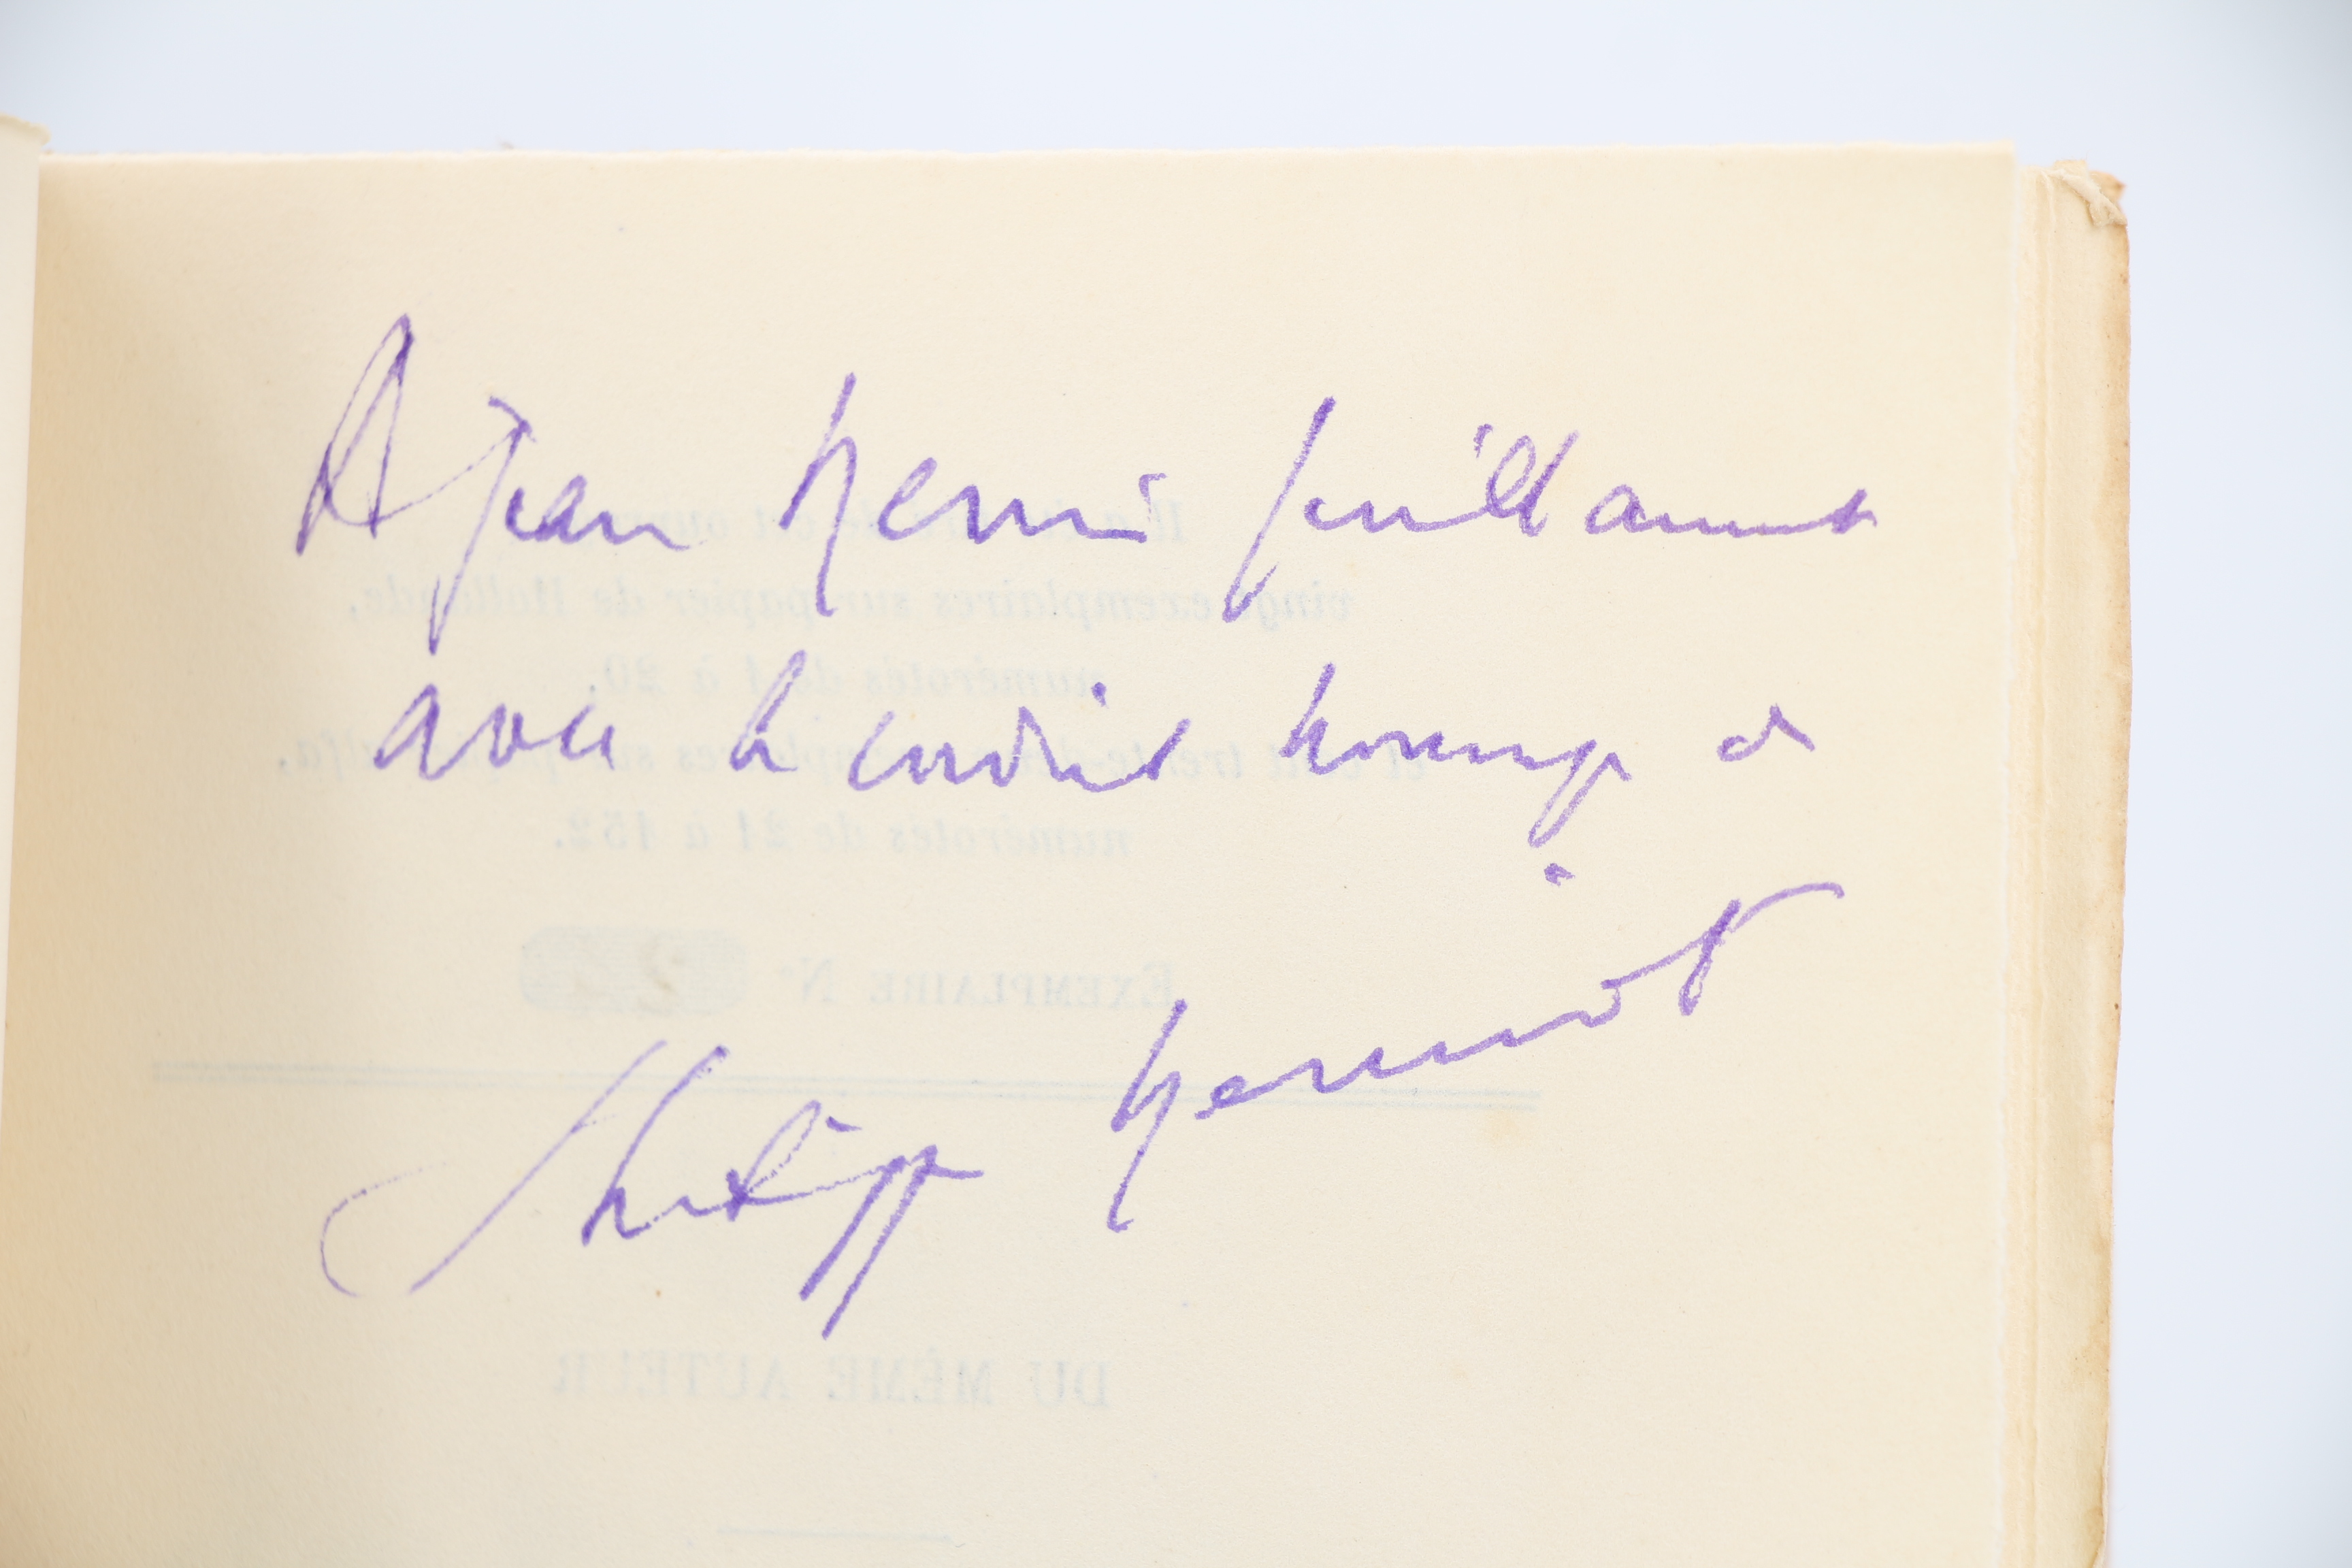 A Jean Henri Guillaumet
avec le cordial hommage de
Philippe Henriot
Il a été tiré de cet ouvrage
vingt exemplaires sur papier de Hollande,
numérotés de 1 à 20,
et cent trente-deux exemplaires sur papier d'Alfa,
numérotés de 21 à 152.
EXEMPLAIRE N°
DU MÊME AUTEUR